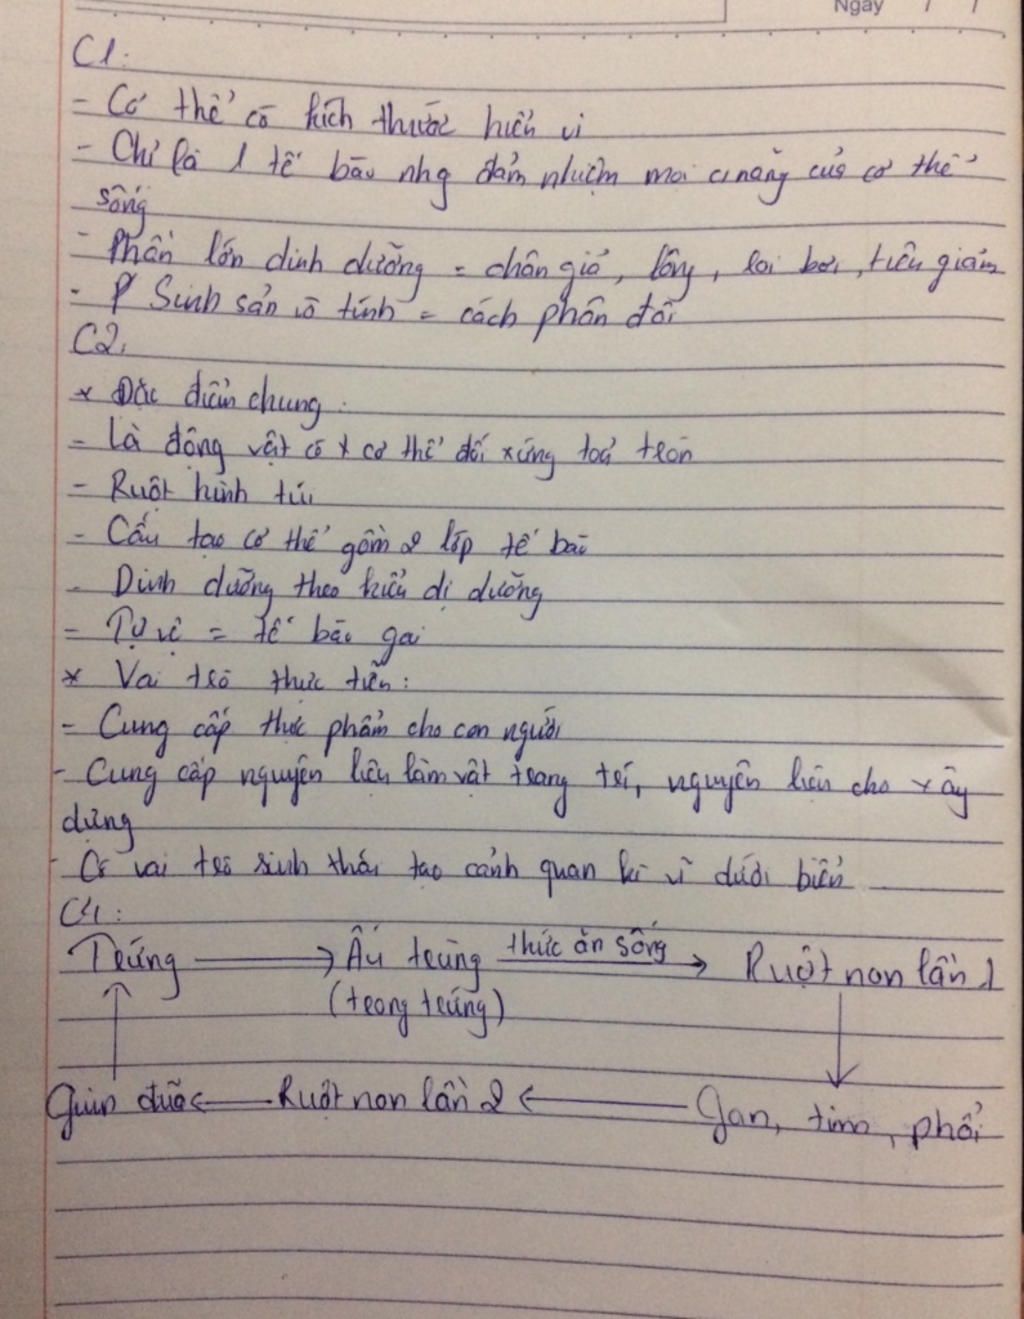 Ngày / /
C1:
- Cơ thể có kích thước hiển vi
- Chỉ là 1 tế bào nhg đảm nhiệm mọi c.năng của cơ thể
sống
- Phần lớn dinh dưỡng = chân giả, lông, roi bơi, tiêu giảm
- Sinh sản vô tính = cách phân đôi
C2,
* Đặc điểm chung:
- Là động vật có cơ thể đối xứng toả tròn
- Ruột hình túi
- Cấu tạo cơ thể gồm 2 lớp tế bào
- Dinh dưỡng theo kiểu dị dưỡng
- Tự vệ = tế bào gai
* Vai trò thực tiễn:
- Cung cấp thực phẩm cho con người
- Cung cấp nguyên liệu làm vật trang trí, nguyên liệu cho xây
dựng
- Có vai trò sinh thái tạo cảnh quan kì vĩ dưới biển
C4:
Trứng → Ấu trùng thức ăn sống → Ruột non lần 1
(trong trứng)
Giun đũa ← Ruột non lần 2 ← Gan, tim, phổi